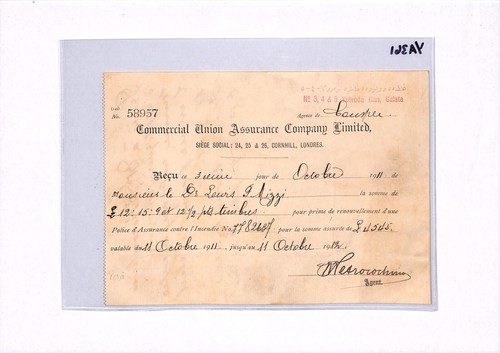 YA351
No. 58957
No. 3, 4 & 5 Yovendo Han, Galata
Agence de
Commercial Union Assurance Company Limited,
SIÈGE SOCIAL: 24, 25 & 26, CORNHILL, LONDRES.
Reçu ce 3ième jour de Octobre 1911 de
Monsieur le Dr Lewis F Mizzi la somme de
£ 12:15:9 et 12½ pts timbres pour prime de renouvellement d'une
Police d'Assurance contre l'Incendie No. 7782637 pour somme assurée de £4545.
valable du 11 Octobre 1911, jusqu'au 11 Octobre 1912.
Agent.